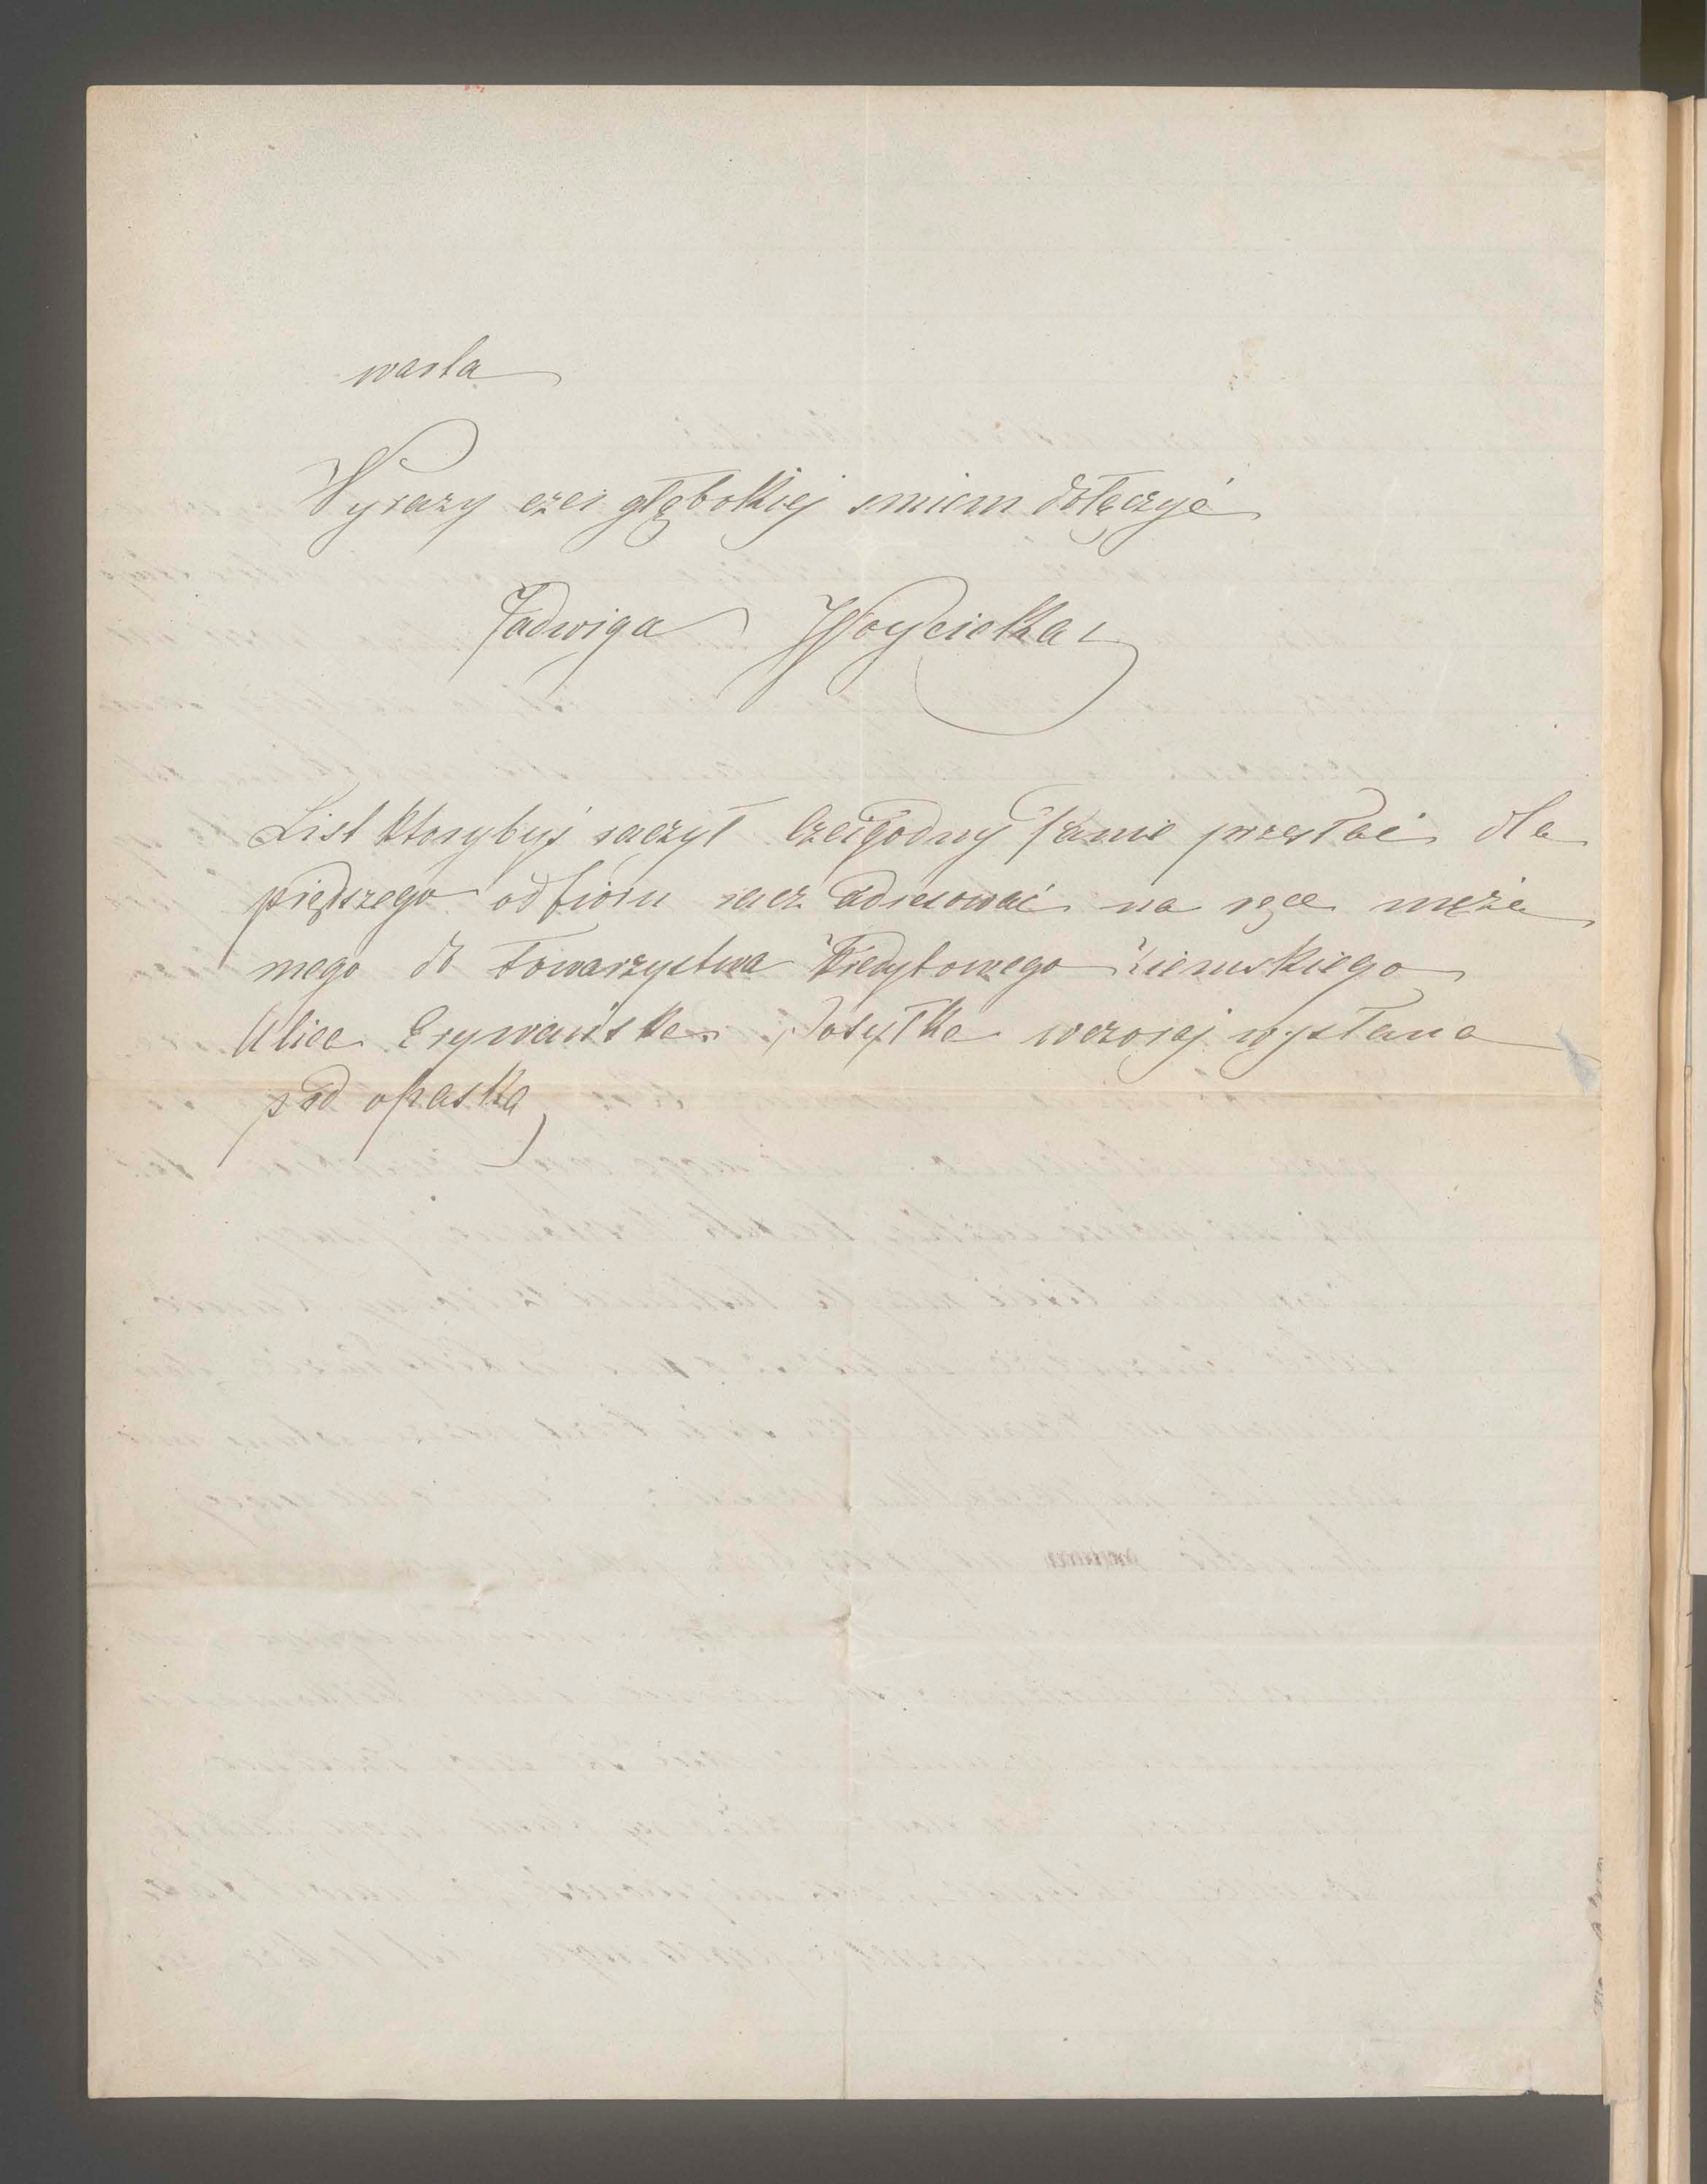 warta
Wyrazy czci głębokiej smiem dołączyć
Jadwiga Woycicka
List ktorybyś raczył Czcigodny Panie przesłać dla
prędszego odbioru racz adresować na ręce męża
mego do Towarzystwa Kredytowego Ziemskiego
Ulica Erywańska. Posyłka wczoraj wysłana
pod opaską